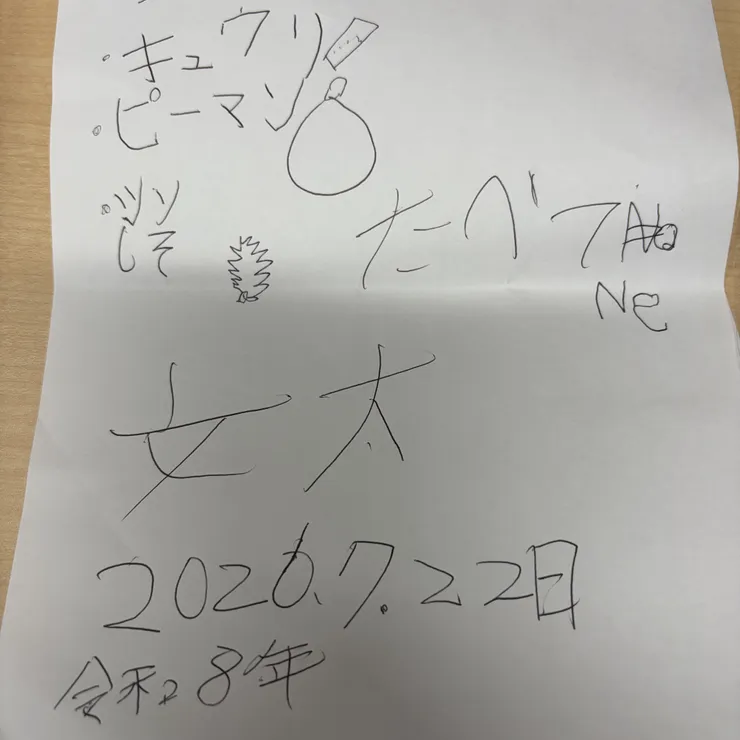 ・キュウリ
・ピーマン
しそ
たべてね
Ne
太
2026.7.22日
令和8年